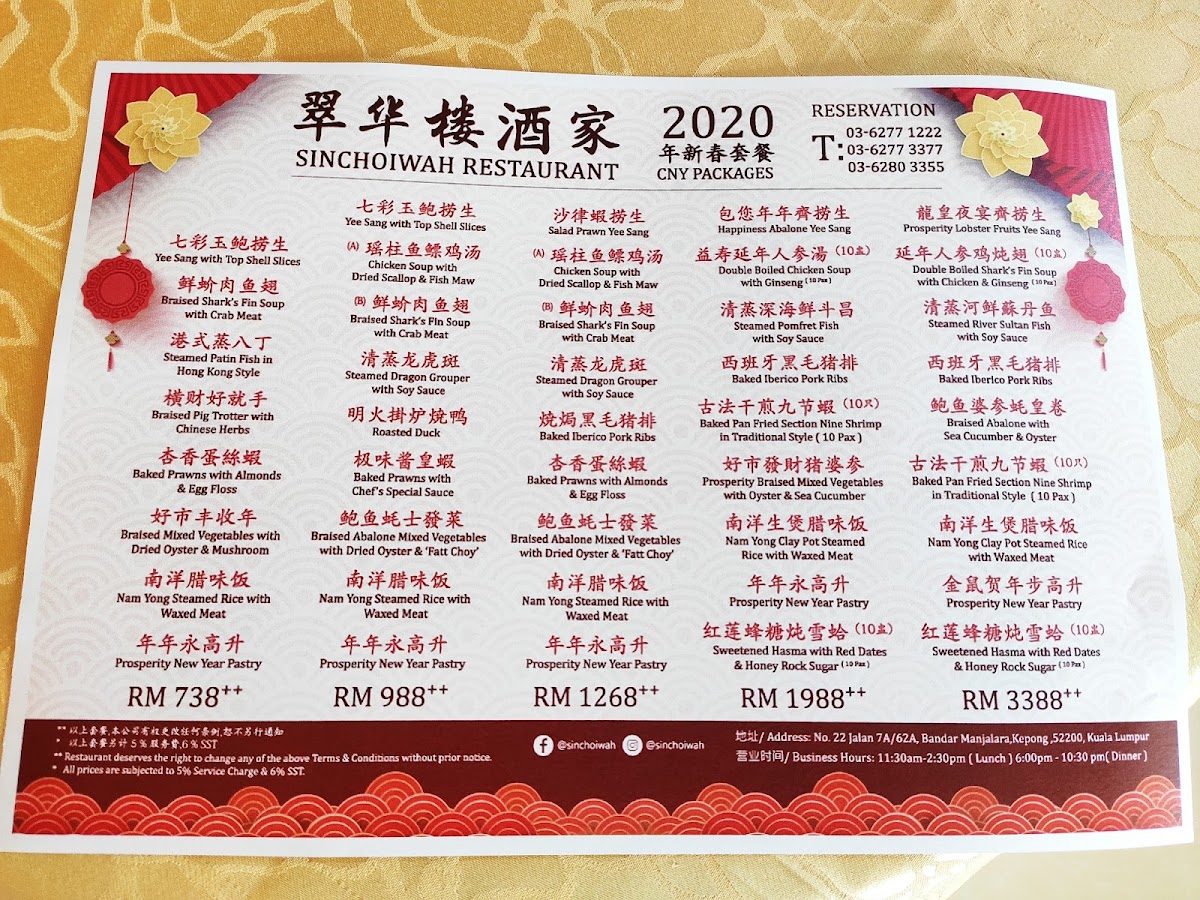 翠华楼酒家
SINCHOIWAH RESTAURANT
2020
年新春套餐
CNY PACKAGES
RESERVATION
T: 03-6277 1222
03-6277 3377
03-6280 3355
七彩玉鲍捞生
Yee Sang with Top Shell Slices
鲜蚧肉鱼翅
Braised Shark's Fin Soup
with Crab Meat
港式蒸八丁
Steamed Patin Fish in
Hong Kong Style
横财好就手
Braised Pig Trotter with
Chinese Herbs
杏香蛋絲蝦
Baked Prawns with Almonds
& Egg Floss
好市丰收年
Braised Mixed Vegetables with
Dried Oyster & Mushroom
南洋腊味饭
Nam Yong Steamed Rice with
Waxed Meat
年年永高升
Prosperity New Year Pastry
RM 738++
七彩玉鲍捞生
Yee Sang with Top Shell Slices
(A) 瑶柱鱼鳔鸡汤
Chicken Soup with
Dried Scallop & Fish Maw
(B) 鲜蚧肉鱼翅
Braised Shark's Fin Soup
with Crab Meat
清蒸龙虎斑
Steamed Dragon Grouper
with Soy Sauce
明火掛炉烧鸭
Roasted Duck
极味酱皇蝦
Baked Prawns with
Chef's Special Sauce
鲍鱼蚝士發菜
Braised Abalone Mixed Vegetables
with Dried Oyster & 'Fatt Choy'
南洋腊味饭
Nam Yong Steamed Rice with
Waxed Meat
年年永高升
Prosperity New Year Pastry
RM 988++
沙律蝦捞生
Salad Prawn Yee Sang
(A) 瑶柱鱼鳔鸡汤
Chicken Soup with
Dried Scallop & Fish Maw
(B) 鲜蚧肉鱼翅
Braised Shark's Fin Soup
with Crab Meat
清蒸龙虎斑
Steamed Dragon Grouper
with Soy Sauce
烧焗黑毛猪排
Baked Iberico Pork Ribs
杏香蛋絲蝦
Baked Prawns with Almonds
& Egg Floss
鲍鱼蚝士發菜
Braised Abalone Mixed Vegetables
with Dried Oyster & 'Fatt Choy'
南洋腊味饭
Nam Yong Steamed Rice with
Waxed Meat
年年永高升
Prosperity New Year Pastry
RM 1268++
包您年年齊捞生
Happiness Abalone Yee Sang
益寿延年人参湯 (10盅)
Double Boiled Chicken Soup
with Ginseng (10 Pax)
清蒸深海鲜斗昌
Steamed Pomfret Fish
with Soy Sauce
西班牙黑毛猪排
Baked Iberico Pork Ribs
古法干煎九节蝦 (10只)
Baked Pan Fried Section Nine Shrimp
in Traditional Style ( 10 Pax )
好市發財猪婆参
Prosperity Braised Mixed Vegetables
with Oyster & Sea Cucumber
南洋生煲腊味饭
Nam Yong Clay Pot Steamed
Rice with Waxed Meat
年年永高升
Prosperity New Year Pastry
红莲蜂糖炖雪蛤 (10盅)
Sweetened Hasma with Red Dates
& Honey Rock Sugar (10 Pax)
RM 1988++
龍皇夜宴齊捞生
Prosperity Lobster Fruits Yee Sang
延年人参鸡炖翅 (10盅)
Double Boiled Shark's Fin Soup
with Chicken & Ginseng (10 Pax)
清蒸河鲜蘇丹鱼
Steamed River Sultan Fish
with Soy Sauce
西班牙黑毛猪排
Baked Iberico Pork Ribs
鲍鱼婆参蚝皇卷
Braised Abalone with
Sea Cucumber & Oyster
古法干煎九节蝦 (10只)
Baked Pan Fried Section Nine Shrimp
in Traditional Style ( 10 Pax )
南洋生煲腊味饭
Nam Yong Clay Pot Steamed Rice
with Waxed Meat
金鼠贺年步高升
Prosperity New Year Pastry
红莲蜂糖炖雪蛤 (10盅)
Sweetened Hasma with Red Dates
& Honey Rock Sugar (10 Pax)
RM 3388++
** 以上套餐,本公司有权更改任何条例,恕不另行通知
* 以上套餐另计 5 % 服务费,6 % SST
** Restaurant deserves the right to change any of the above Terms & Conditions without prior notice.
* All prices are subjected to 5% Service Charge & 6% SST.
@sinchoiwah @sinchoiwah
地址/ Address: No. 22 Jalan 7A/62A, Bandar Manjalara,Kepong ,52200, Kuala Lumpur
营业时间/ Business Hours: 11:30am-2:30pm ( Lunch ) 6:00pm - 10:30 pm( Dinner )